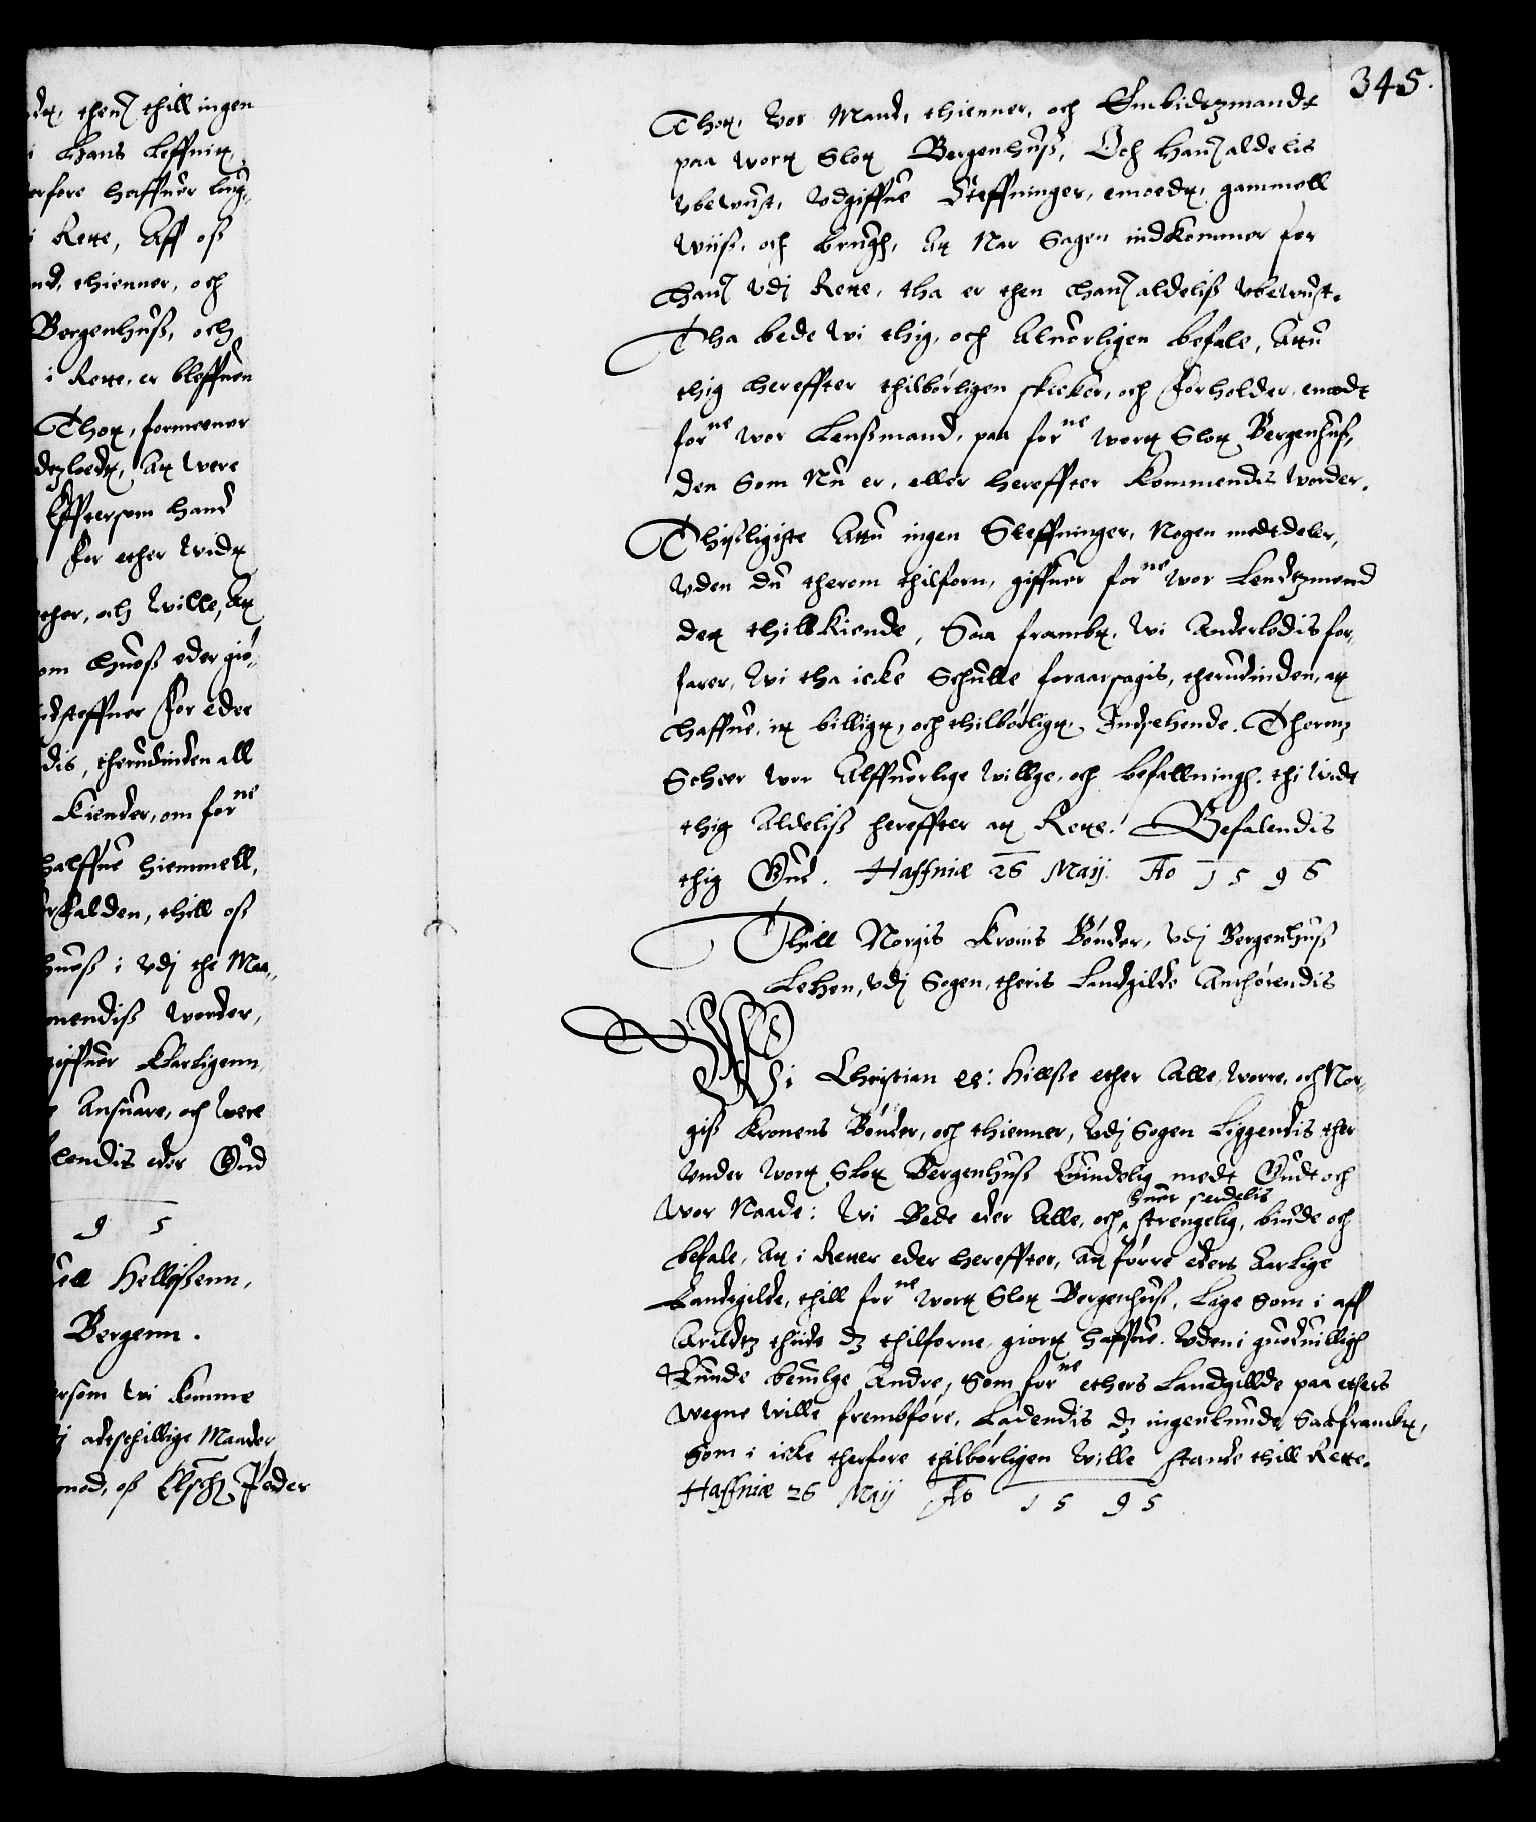 thenn thill ingen
Hans Leffnit
erfore haffuer
i Rette, Aff oß
nd, thienner, och
Bergenhuß, och
i Rette, er bleffuen
Thott, formeener
att were
Efftersom hand
for ether widt
ether, och wille, att
om huoß eder giø,,
indsteffner for eder
dis, therudinden all
Kiender, om forne
halffue hiemmell,
falden, thill oß
huoß i vdj the Maa,,
mendiß worder,
giffuer Klarligenn
Ansuare, och were
lendis eder Gud
9 5
Helleßenn,
Bergenn.
ersom wi komme
adtschillige Maader
mod, oß Elsch: Peder
345.
Thott, vor Mand, thienner, och Embidtzmandt
paa wort Slot Bergenhuß, Och hannem aldelis
vbewust, vdgiffue Steffninger, emoedt, gammell
wiiß, och brugh, At Nar Sagen indkommer for
hannem vdj Rette, tha er then hannem aldeliß vbewust.
Tha bede wi thig, och Aluorligen befale, Attu
thig hereffter thilbørligen skicker, och forholder, emodt
forne wor Lenßmand, paa forne wort Slot Bergenhuß,
den Som Nu er, eller hereffter Kommendis worder.
Thißligiste Attu ingen Steffninger, Nogen meddeler,
Vden du therom thilforn, giffuer forne wor Lendtzmand
det thillkiende, Saa frambt, wi Anderledis for,,
farer, wi tha icke Schulle foraarsagis, therudinden, at
haffue, it billigt, och thilbørligt, Indsehende. Thermz
Scheer wor Alffuorlige willge, och befallningh. thi widt
thig Aldeliß hereffter at Rette. Befalendis
thig Gud. Haffniæ 26 Maij. Ao 1 5 9 6
Thill Norgis Kronis Bønder, vdj Bergenhuß
Lehen, vdj Sogen, theris Landgilde Anthørendis
Wi Christian etc: Hillße ether Alle, worre, och Nor,,
giß Kronens Bønder, och thienner, vdj Sogen Liggendis ther
Vnder wort Slot Bergenhuß Euindelig medt Gudt och
huer serdelis
wor Naade: Wi Bede eder Alle, och strengelig, biude och
befale, At i Retter eder hereffter, At førre eders Aarlige
Landgilde, thill forne wort Slot Bergenhuß, Lige Som i aff
Arildtz thiide dz thilforne, giort haffue. Vden i guoduilligh
Kunde beuilge Andre, Som forne ethers Landgillde paa ethers
wegne wille frembføre, Ladendis dz ingenlunde Saa frambt,
Som i icke therfore thilbørligen wille stande thill Rette.
Haffniæ 26 Maij Ao 1 5 9 5